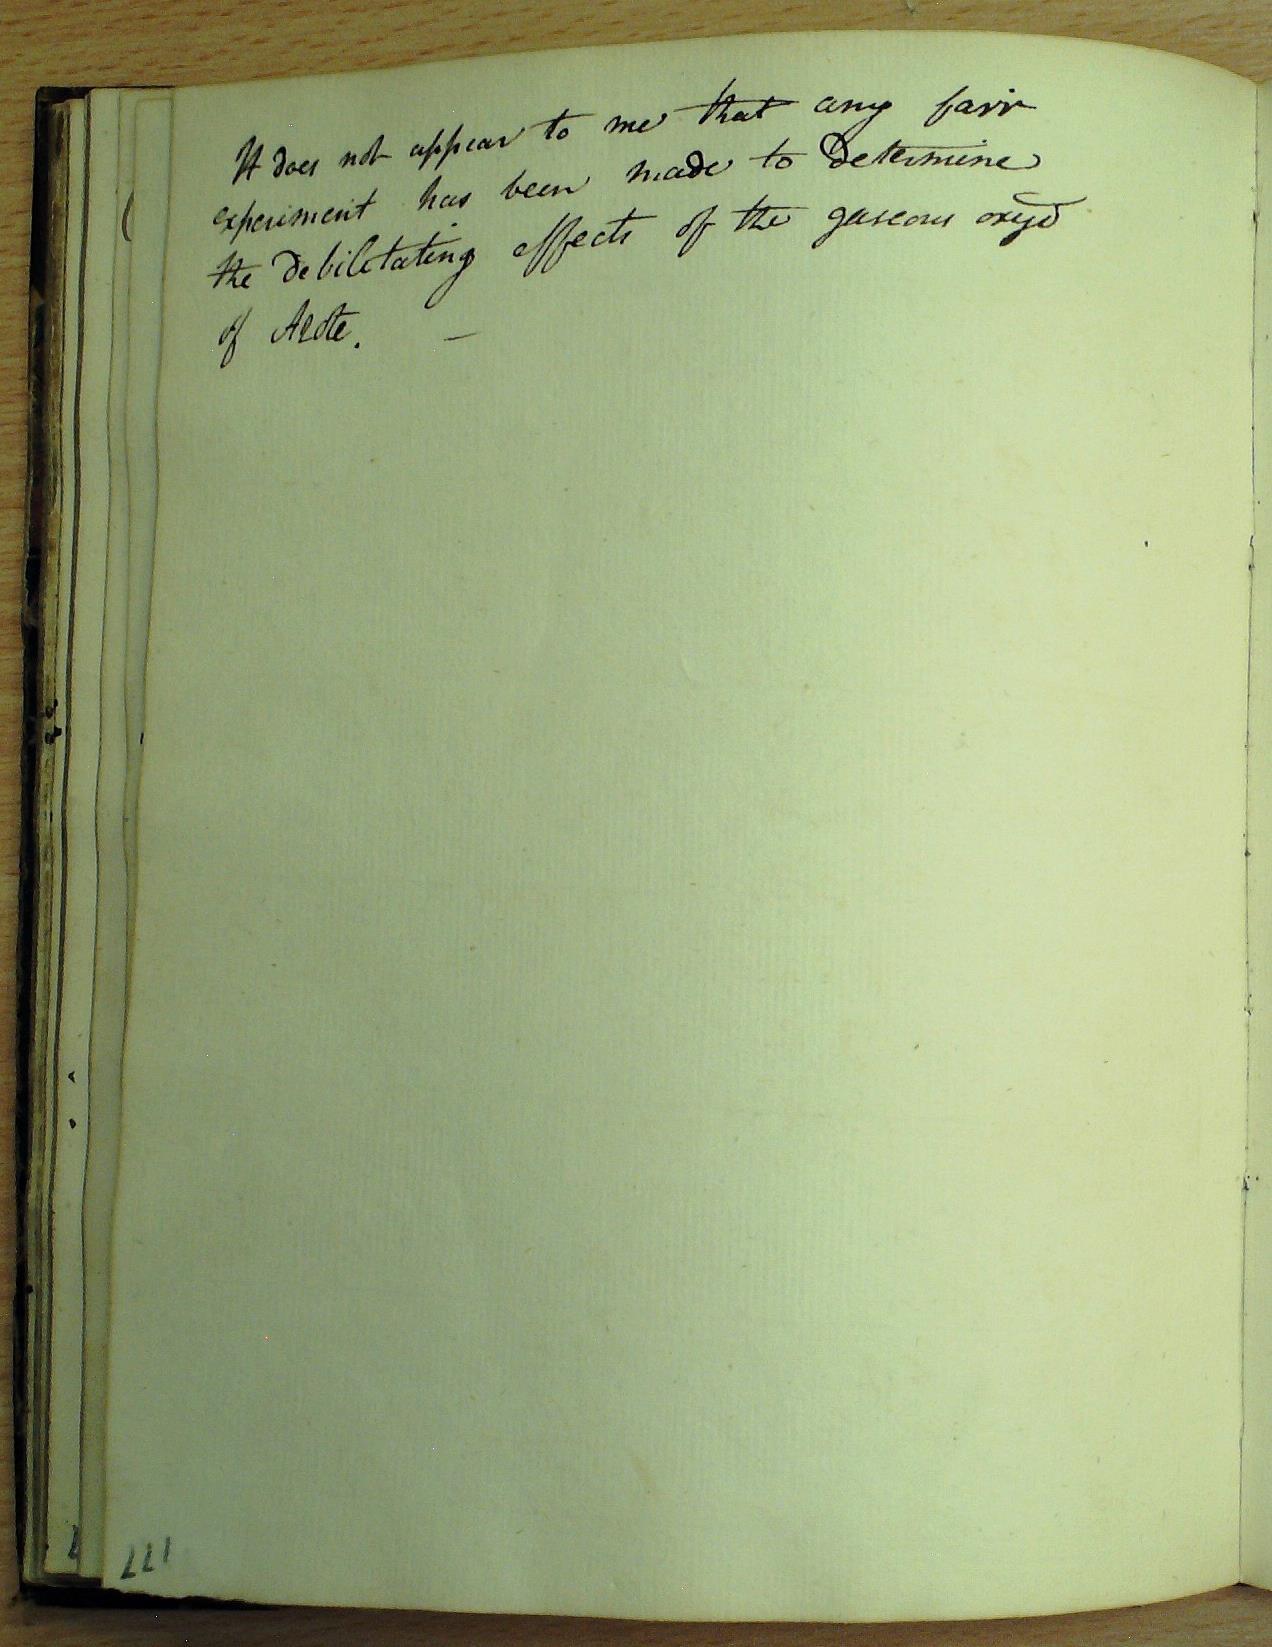 It does not appear to me that any fair
experiment has been made to determine
the debilitating effects of the gaseous oxyd
of Azote. —
177